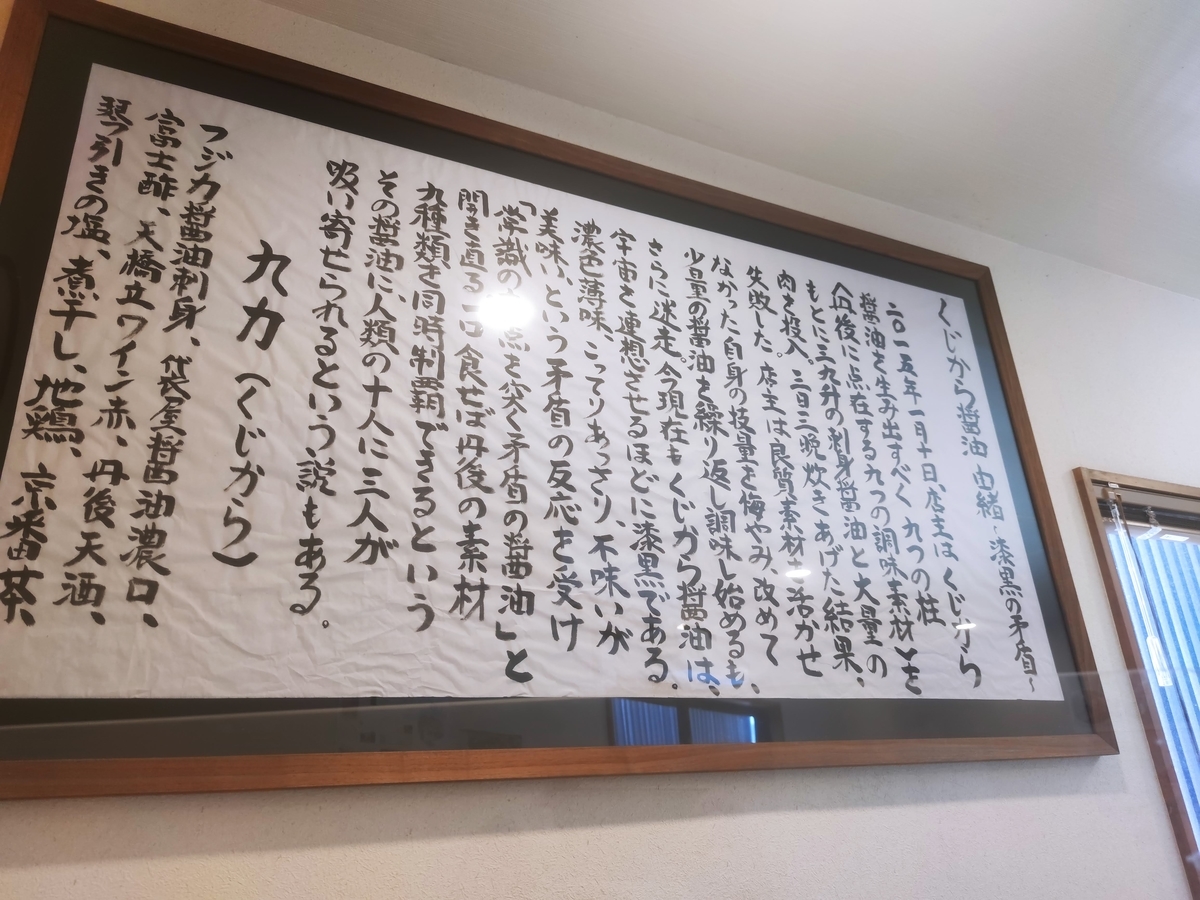 くじから醤油 由緒 ~漆黒の矛盾~
二〇一五年一月十日、店主はくじから
醤油を生み出すべく 九つの柱
(丹後に点在する九つの調味素材)を
もとに三九升の刺身醤油と大量の
肉を投入。三日三晩炊きあげた結果、
失敗した。店主は良質素材を活かせ
なかった自身の技量を悔やみ、改めて
少量の醤油を繰り返し調味し始めるも、
さらに迷走。今現在もくじから醤油は、
宇宙を連想させるほどに漆黒である。
濃色薄味、こってりあっさり、不味いが
美味い、という矛盾の反応を受け
「常識の点を突く矛盾の醤油」と
開き直る。一口食せば丹後の素材
九種類を同時制覇できるという
その醤油に、人類の十人に三人が
吸い寄せられるという説もある。
九力(くじから)
フジカ醤油刺身、袋屋醤油濃口、
富士酢、天橋立ワイン赤、丹後天酒、
琴引きの塩、煮干し、地鶏、京番茶、